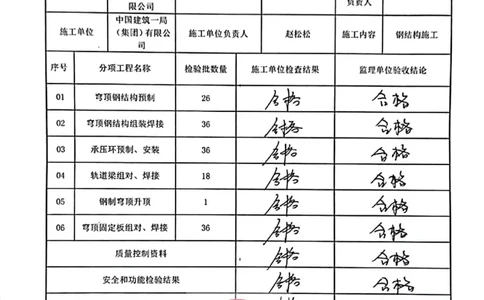 限公司
负责人
施工单位 中国建筑一局（集团）有限公司 施工单位负责人 赵松松 施工内容 钢结构施工
序号 分项工程名称 检验批数量 施工单位检查结果 监理单位验收结论
01 穹顶钢结构预制 26 合格 合格
02 穹顶钢结构组装焊接 36 合格 合格
03 承压环预制、安装 36 合格 合格
04 轨道梁组对、焊接 18 合格 合格
05 钢制穹顶升顶 1 合格 合格
06 穹顶固定板组对、焊接 36 合格 合格
质量控制资料 合格 合格
安全和功能检验结果 合格 合格